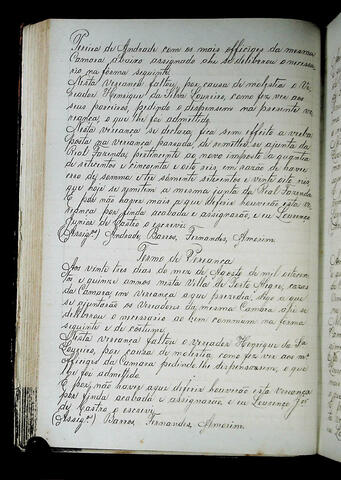 Pereira de Andrade com os mais officiaes da mesma
Camara abaixo assignado ahi se deliberou o necessa-
rio na forma seguinte.
Nesta vereança faltou por causa de molestia o Ve-
reador Henrique da Silva Loureiro, como fez ver aos
seus parceiros, pedindo o dispensem na presente ve-
reança, o que lhe foi admittido
Nesta vereança se declara fica sem effeito a verba
posta na vereança passada, de remetter-se a junta da
Real Fazenda pertincente ao novo imposto a quantia
de setecentos e cincoenta e oito reis, em razão de haver
erro de somma e ser somente setenta e vinte oito reis
que hoje se remettem a mesma junta da Real Fazenda
E por não haver mais a que deferir houverão esta ve-
reança por finda acabada e assignarão, e eu Lourenço
Junior de Castro o escrevi
(Assigº) Andrade, Barros, Fernandes, Amorim.
Termo de Vereança
Aos vinte tres dias do mez de Agosto de mil oitocen-
tos e quinze annos nesta Villa de Porto Alegre, cazas
da Camara em vereança aqui presedia, digo e que
se ajuntarão os Vereadores da mesma Camara ahi se
deliberou o necessario ao bem commum na forma
seguinte e de costume.
Nesta vereança faltou o vereador Henrique da Sª
Loureiro, por cauza de molestia como fez ver aos mª
officiaes da Camara pedindo lhe dispensassem, o que
lhe foi admittido.
E por não haver a que deferir houverão esta vereança
por finda acabada e assignarão e eu Lourenço Jor
de Castro o escrevi.
(Assigº) Barros, Fernandes, Amorim.